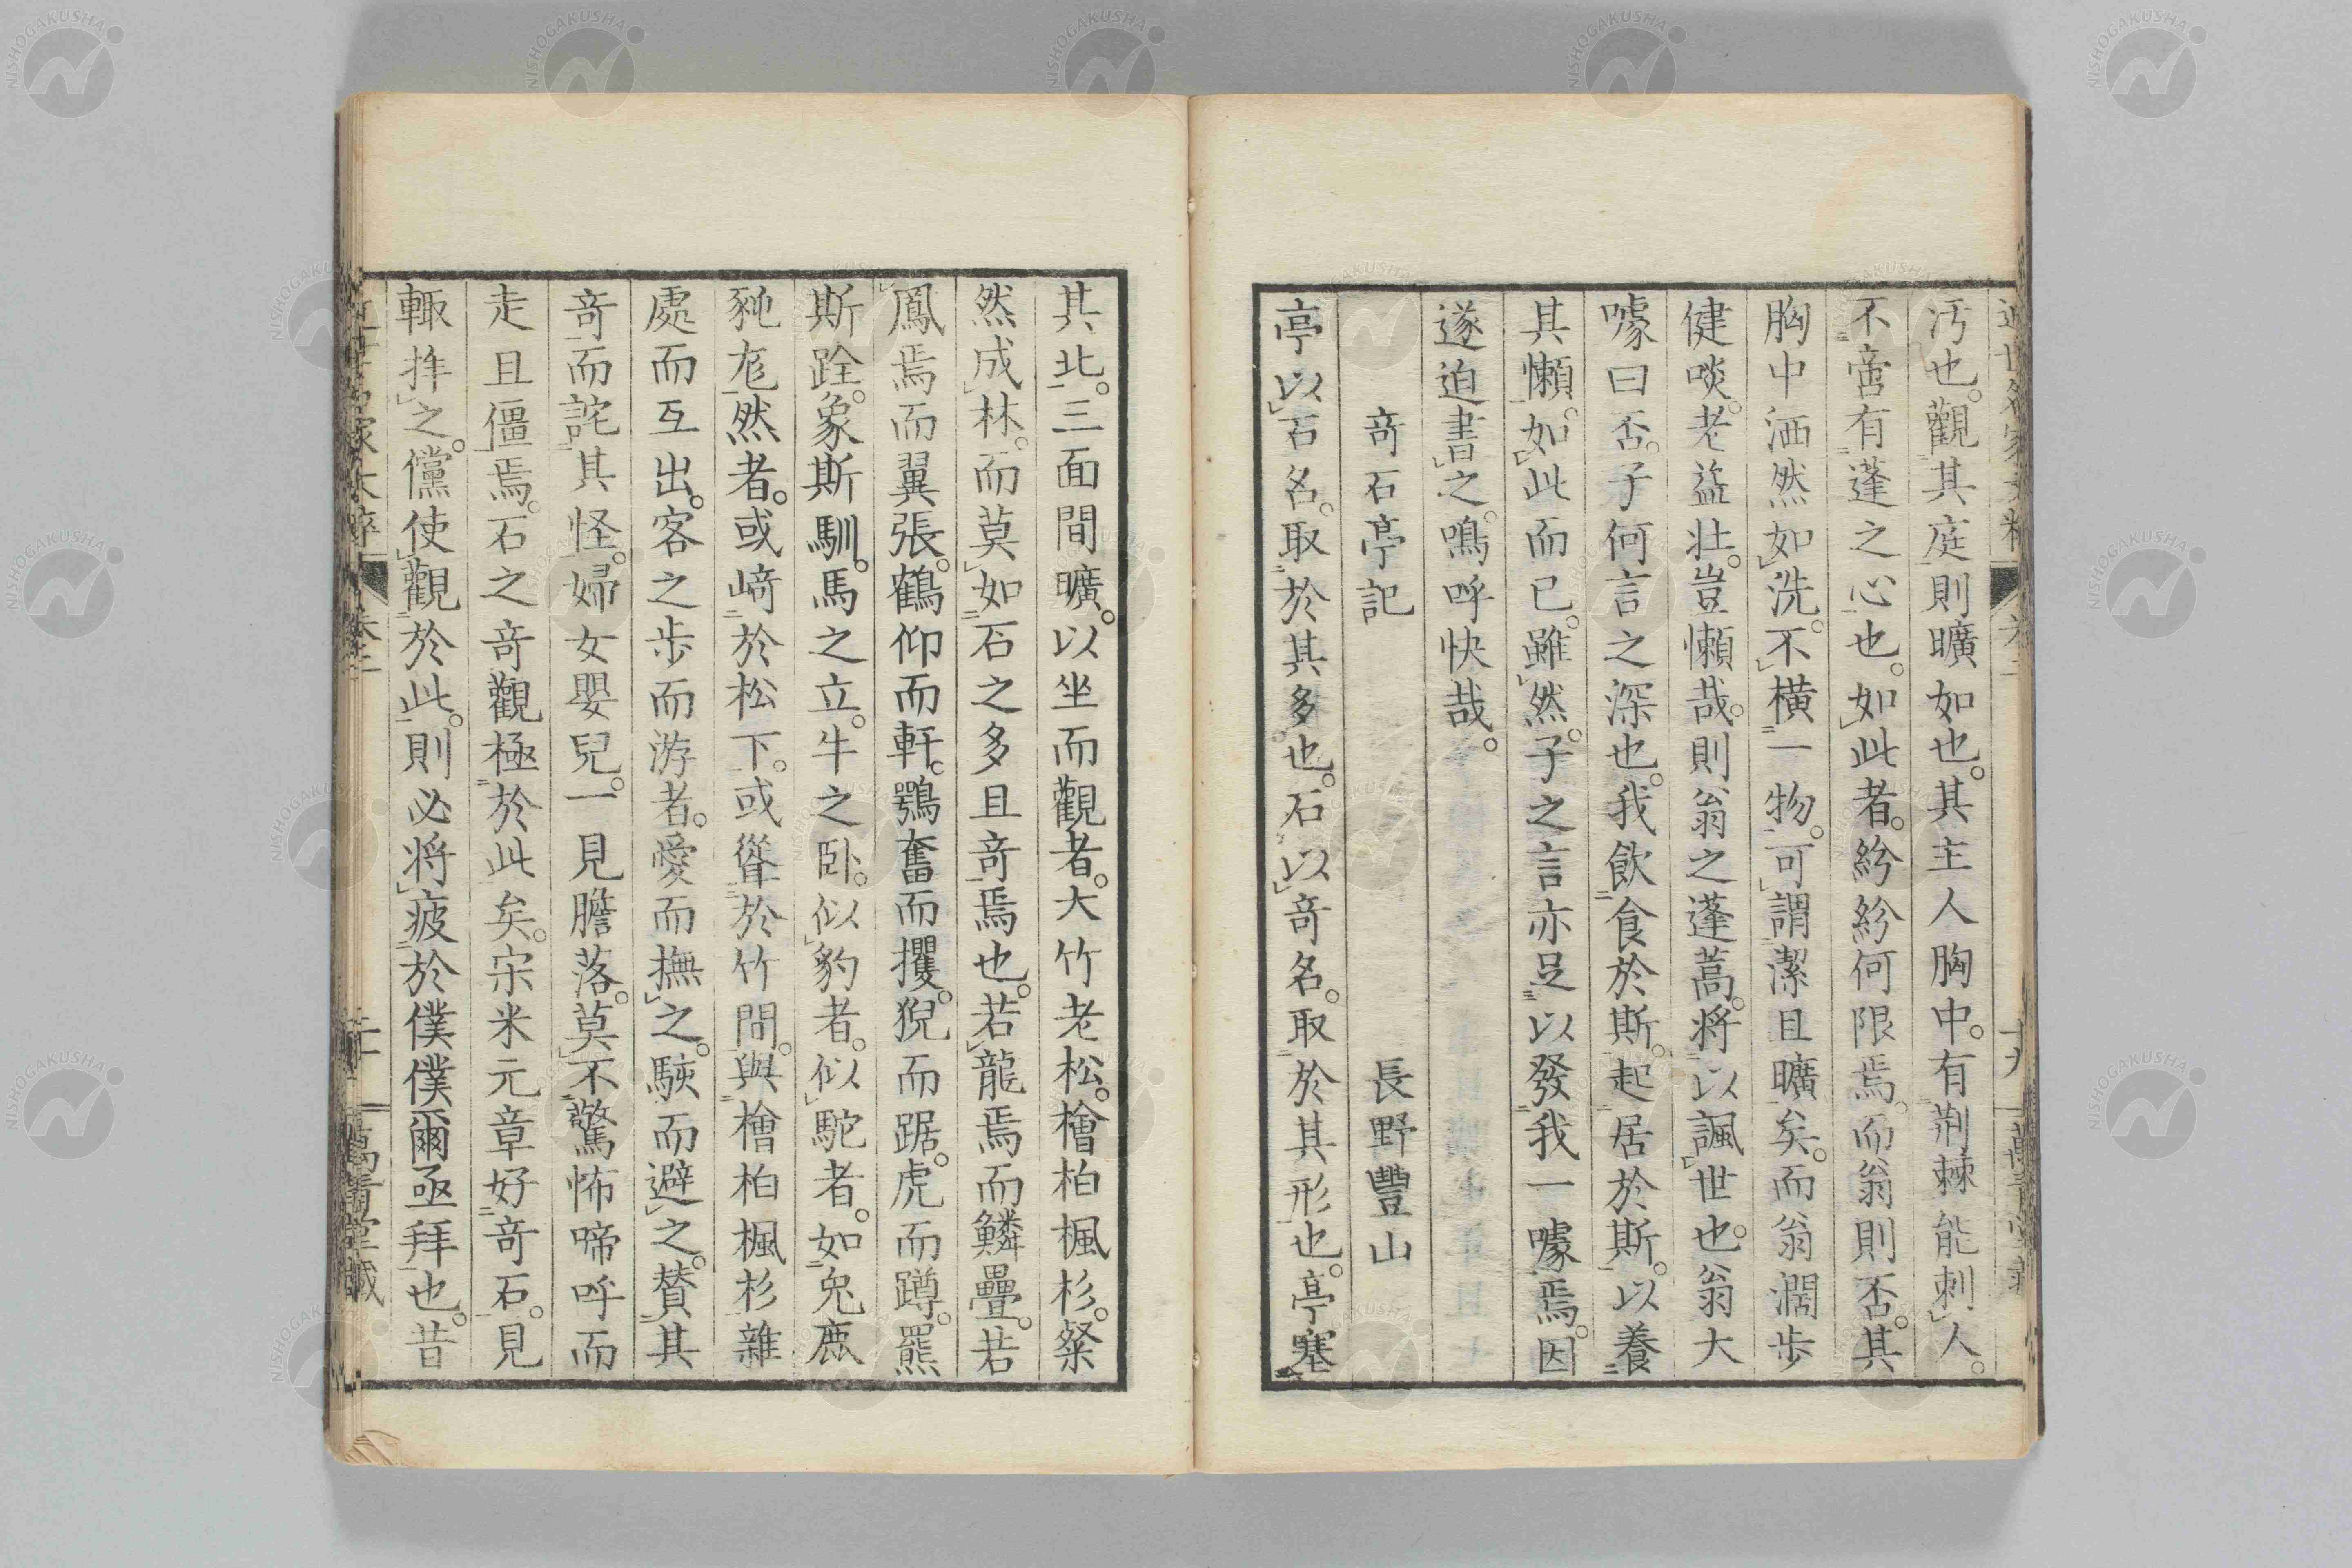 汚也。觀其庭則曠如也。其主人胸中。有荆棘能刺人。
不啻有蓬之心也。如此者。紛紛何限焉。而翁則否。其
胸中洒然如洗。不横一物。可謂潔且曠矣。而翁濶歩
健啖。老益壮。豈懶哉。則翁之蓬蒿。將以諷世也。翁大
噱曰否。子何言之深也。我飲食於斯。起居於斯。以養
其懶。如此而已。雖然。子之言亦足以發我一噱焉。因
遂迫書之。嗚呼快哉。
竒石亭記 長野豐山
亭以石名。取於其多也。石以竒名。取於其形也。亭塞
其北。三面間曠。以坐而觀者。大竹老松。檜柏楓杉。粲
然成林。而莫如石之多且竒焉也。若龍焉而鱗疊。若
鳳焉而翼張。鶴仰而軒。鶚奮而攫。猊而踞。虎而蹲。羆
斯跧。象斯馴。馬之立。牛之卧。似豹者。似駝者。如兔鹿
豘尨然者。或﨑於松下。或聳於竹間。與檜柏楓杉雜
處而互出。客之歩而游者。愛而撫之。駭而避之。賛其
竒而詫其怪。婦女嬰兒。一見膽落。莫不驚怖啼呼而
走且僵焉。石之竒觀極於此矣。宋米元章好竒石。見
輙拜之。儻使觀於此。則必將疲於僕僕爾亟拜也。昔
近世名家文粹 卷二 二十 萬青堂藏
NISHOGAKUSHA